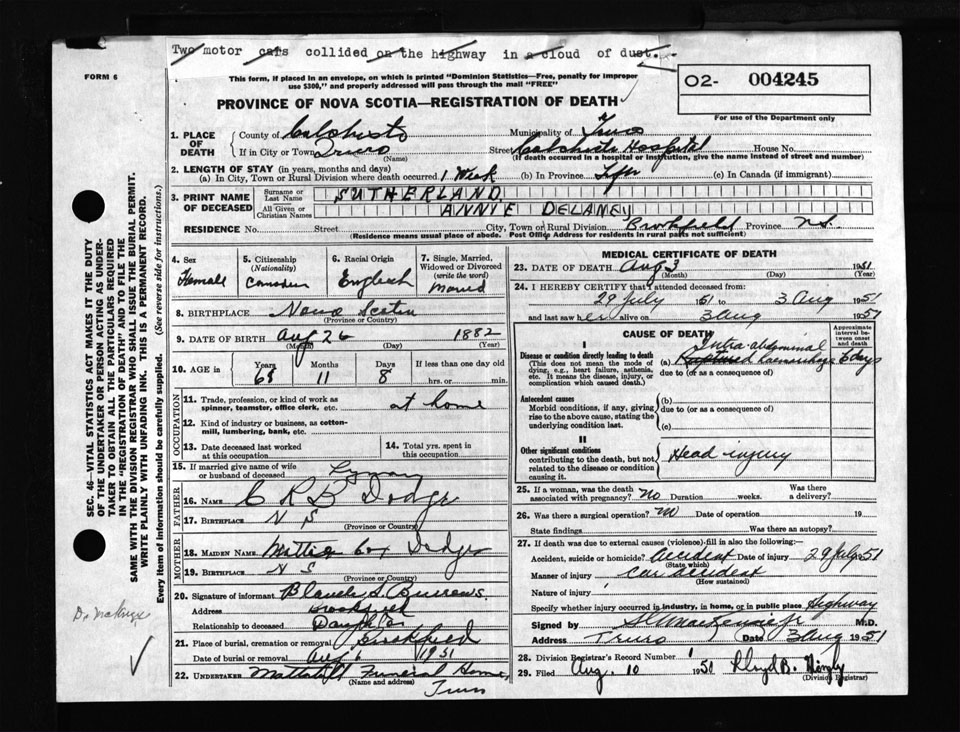 Two motor cars collided on the highway in a cloud of dust.
FORM 6
This form, if placed in an envelope, on which is printed "Dominion Statistics—Free, penalty for improper
use $300," and properly addressed will pass through the mail "FREE"
O2- 004245
For use of the Department only
PROVINCE OF NOVA SCOTIA—REGISTRATION OF DEATH
1. PLACE OF DEATH
County of Colchester Municipality of Truro
If in City or Town Truro (Name) Street Colchester Hospital House No.
(If death occurred in a hospital or institution, give the name instead of street and number)
2. LENGTH OF STAY (in years, months and days)
(a) In City, Town or Rural Division where death occurred 1 Week (b) In Province Life (c) In Canada (if immigrant)
3. PRINT NAME OF DECEASED
Surname or Last Name SUTHERLAND
All Given or Christian Names ANNIE DELANEY
RESIDENCE No. Street City, Town or Rural Division Brookfield Province N.S.
(Residence means usual place of abode. Post Office Address for residents in rural parts not sufficient)
4. Sex Female
5. Citizenship (Nationality) Canadian
6. Racial Origin English
7. Single, Married, Widowed or Divorced (write the word) Married
8. BIRTHPLACE Nova Scotia
(Province or Country)
9. DATE OF BIRTH Aug 26 1882
(Month) (Day) (Year)
10. AGE in Years Months Days If less than one day old
68 11 8 hrs. or min.
OCCUPATION
11. Trade, profession, or kind of work as
spinner, teamster, office clerk, etc. at home
12. Kind of industry or business, as cotton-
mill, lumbering, bank, etc.
13. Date deceased last worked
at this occupation
14. Total yrs. spent in
this occupation
15. If married give name of wife
or husband of deceased Lyman
FATHER
16. NAME C R B Dodge
17. BIRTHPLACE N S
(Province or Country)
MOTHER
18. MAIDEN NAME Mattie Cox Dodge
19. BIRTHPLACE N S
(Province or Country)
20. Signature of informant Blanche S. Burrows.
Address Brookfield
Relationship to deceased Daughter
21. Place of burial, cremation or removal Brookfield
Date of burial or removal Aug 6 1951
22. UNDERTAKER Mattatall Funeral Home,
(Name and address)
Truro
MEDICAL CERTIFICATE OF DEATH
23. DATE OF DEATH Aug 3 1951
(Month) (Day) (Year)
24. I HEREBY CERTIFY that I attended deceased from:
29 July 1951 to 3 Aug 1951
and last saw her alive on 3 Aug 1951
CAUSE OF DEATH
Approximate interval between onset and death
I
Intra abdominal
Disease or condition directly leading to death (a) Ruptured haemorrhage 6 days
(This does not mean the mode of due to (or as a consequence of)
dying, e.g., heart failure, asthenia,
etc. It means the disease, injury, or
complication which caused death.)
Antecedent causes (b)
Morbid conditions, if any, giving due to (or as a consequence of)
rise to the above cause, stating the
underlying condition last. (c)
II
Other significant conditions Head injury
contributing to the death, but not
related to the disease or condition
causing it.
25. If a woman, was the death
associated with pregnancy? No Duration weeks. Was there a delivery?
26. Was there a surgical operation? No Date of operation 19
State findings Was there an autopsy?
27. If death was due to external causes (violence)-fill in also the following:—
Accident, suicide or homicide? Accident Date of injury 29 July 51
(State which)
Manner of injury Car accident
(How sustained)
Nature of injury
Specify whether injury occurred in industry, in home, or in public place Highway
Signed by M.D.
Address Truro Date 3 Aug 1951
28. Division Registrar's Record Number
29. Filed Aug. 10 1951 Lloyd B.
(Division Registrar)
SEC. 46—VITAL STATISTICS ACT MAKES IT THE DUTY
OF THE UNDERTAKER OR PERSON ACTING AS UNDER-
TAKER TO OBTAIN ALL THE PARTICULARS REQUIRED
IN THE "REGISTRATION OF DEATH" AND TO FILE THE
SAME WITH THE DIVISION REGISTRAR WHO SHALL ISSUE THE BURIAL PERMIT.
WRITE PLAINLY WITH UNFADING INK. THIS IS A PERMANENT RECORD.
Every item of information should be carefully supplied. (See reverse side for instructions.)